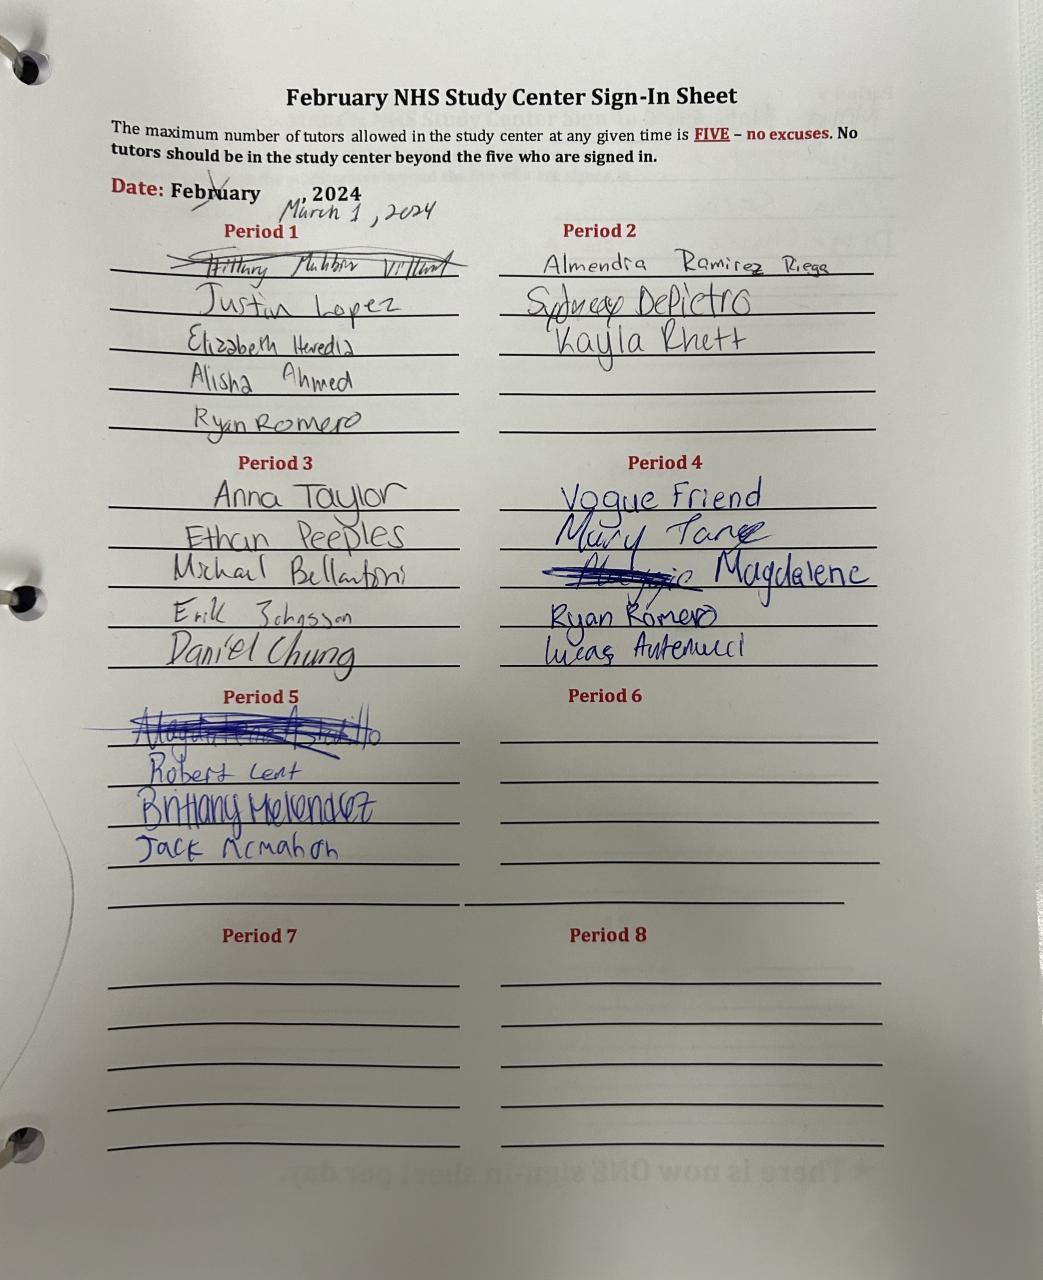 February NHS Study Center Sign-In Sheet
The maximum number of tutors allowed in the study center at any given time is FIVE – no excuses. No
tutors should be in the study center beyond the five who are signed in.
Date: February , 2024
March 1, 2024
Period 1
Justin Lopez
Elizabeth Heredia
Alisha Ahmed
Ryan Romero
Period 2
Almendra Ramirez Riega
Sydney DePietro
Kayla Rhett
Period 3
Anna Taylor
Ethan Peeples
Michael Bellantoni
Erik Johnsson
Daniel Chung
Period 4
Vogue Friend
Mary Tang
Magdalene
Ryan Romero
Lucas Antenucci
Period 5
Robert Lent
Brittany Melendez
Jack Mcmahon
Period 6
Period 7
Period 8